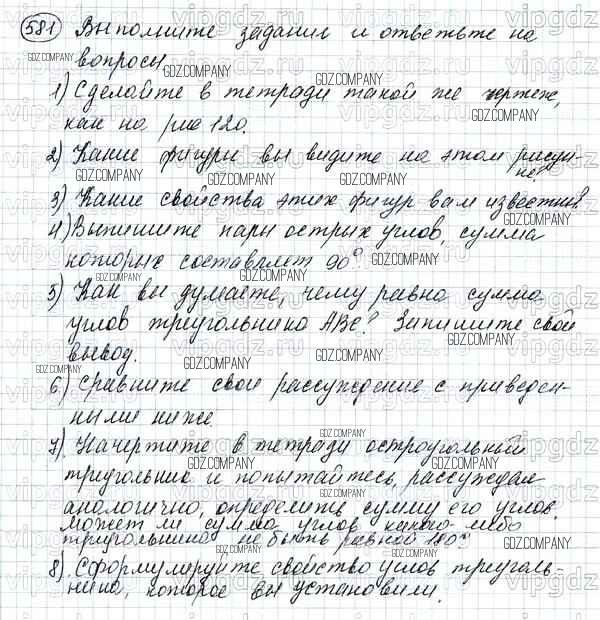 581 Выполните задания и ответьте на
вопросы
1) Сделайте в тетради такой же чертеж,
как на рис 120.
2) Какие фигуры вы видите на этом рисун-
ке?
3) Какие свойства этих фигур вам известны?
4) Выпишите пары острых углов, сумма
которых составляет 90°.
5) Как вы думаете, чему равна сумма
углов треугольника ABC? Запишите свой
вывод.
6) Сравните свои рассуждение с приведен-
ными ниже.
7) Начертите в тетради остроугольный
треугольник и попытайтесь, рассуждая
аналогично, определить сумму его углов.
Может ли сумма углов какого-либо
треугольника не быть равной 180°?
8) Сформулируйте свойство углов треуголь-
ника, которое вы установили.